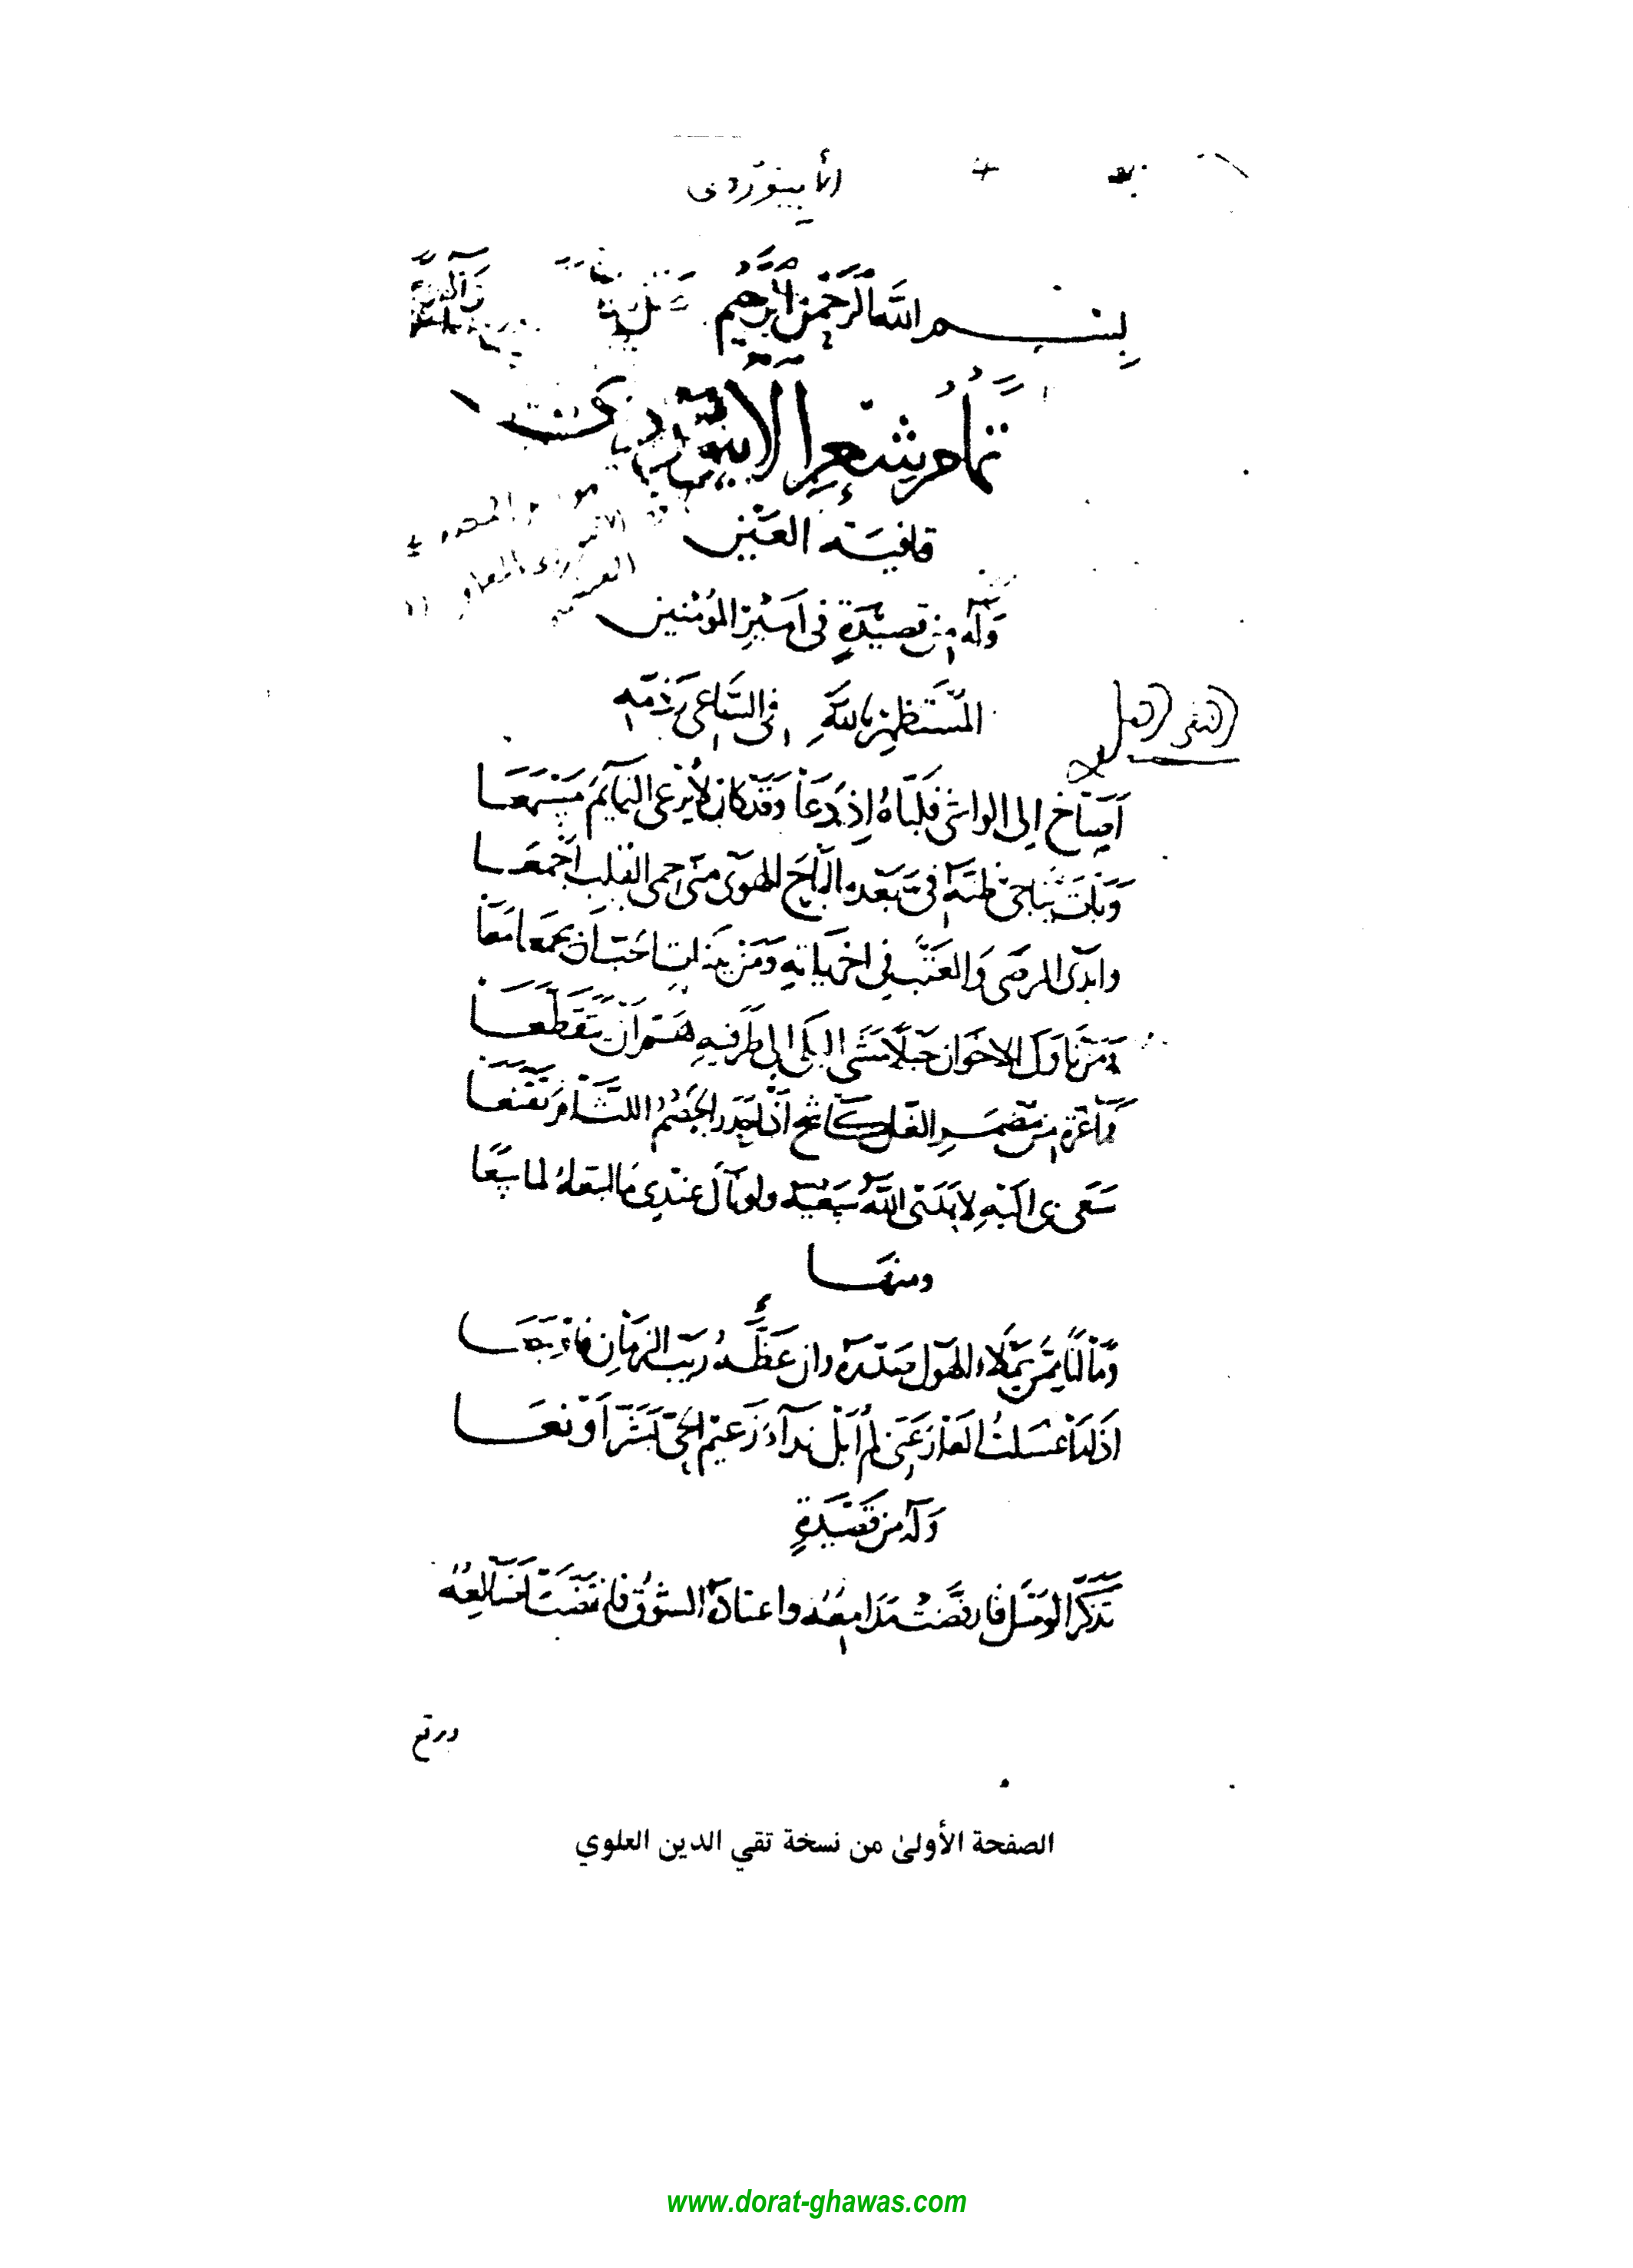 الأبيوردي
بسم الله الرحمن الرحيم
تمام شعر الأبيوردي
قافية العين
وله من قصيدة في أمير المؤمنين
المستظهر بالله في الساعي وذمه
أصاخ إلى الواشي فلباه إذ دعا وقد كان لا يرعي النمائم مسمعا
وبات يناجي ظنه في بعدما أباح الهوى مني حمى القلب أجمعا
وأبدى الرضى والعتب في أخرياته ومن بينات الحب أن يجمعا معا
ومن ناول الاخوان حبلا مشى البلى إلى طرفيه هم أن يتقطعا
فما غره من مضمر الغل كاشح إذا حدر الخصم اللثام تقنعا
سعى بي إليه لا هدى الله سعيه ولو نال عندي ما ابتغاه لما سعا
ومنها
وما لنا يمن يملاء الهول صدره وان عظه ريب الزمان فاوجعا
إذا ما غسلت العار عني لم أبل نداء زعيم الحي بشر أو نعا
وله من قصيدة
تذكر الوصل فارفضت مدامعه واعتاده الشوق فانقضت أضالعه
الصفحة الأولىٰ من نسخة تقي الدين العلوي
www.dorat-ghawas.com